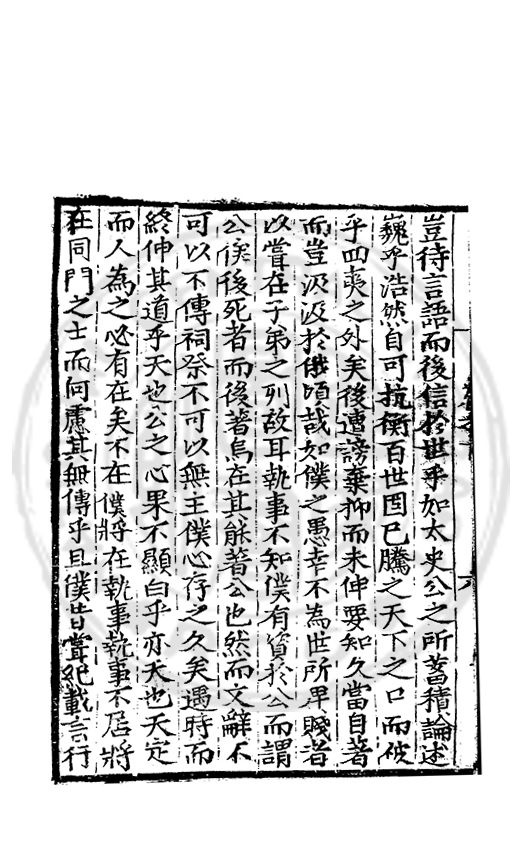 豈待言語而後信於世乎如太史公之所蓄積論述
巍乎浩然自可抗衡百世固已騰之天下之口而被
乎四夷之外矣後遭謗棄抑而未伸要知久當自著
而豈汲汲於俄頃哉如僕之愚幸不為世所卑賤者
以嘗在子弟之列故耳執事不知僕有資於公而謂
公俟後死者而後著烏在其能著公也然而文辭不
可以不傳祠祭不可以無主僕心存之久矣遇時而
終伸其道乎天也公之心果不顯白乎亦天也天定
而人為之必有在矣不在僕將在執事執事不居將
在同門之士而何慮其無傳乎且僕昔嘗紀載言行